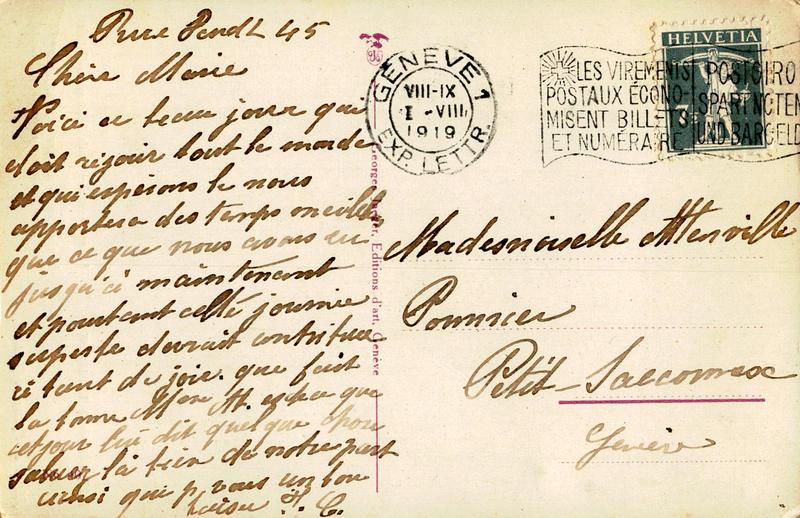 Chère Marie
Voici ce beau jour qui
doit réjouir tout le monde
et qui espérons le nous
apportera des temps meille
que ce que nous avons eu
jusqu'ici maintenant
et pourtant cette journée
superbe devrait contribuer
tant de joie. que fait
la bonne Mère M. est ce que
ce jour lui dit quelque chose
saluez là bien de notre part
ainsi que p. vous un bon
baiser
GENÈVE 1
VIII-IX
I -VIII
1919
EXP. LETTR.
LES VIREMENTS
POSTAUX ÉCONO-
MISENT BILLETS
ET NUMÉRAIRE
POSTGIRO
SPART NOTEN
UND BARGELD
HELVETIA
Georges Jaeger, Editions d'art, Genève
Mademoiselle
Pommier
Petit-Saconnex
Genève